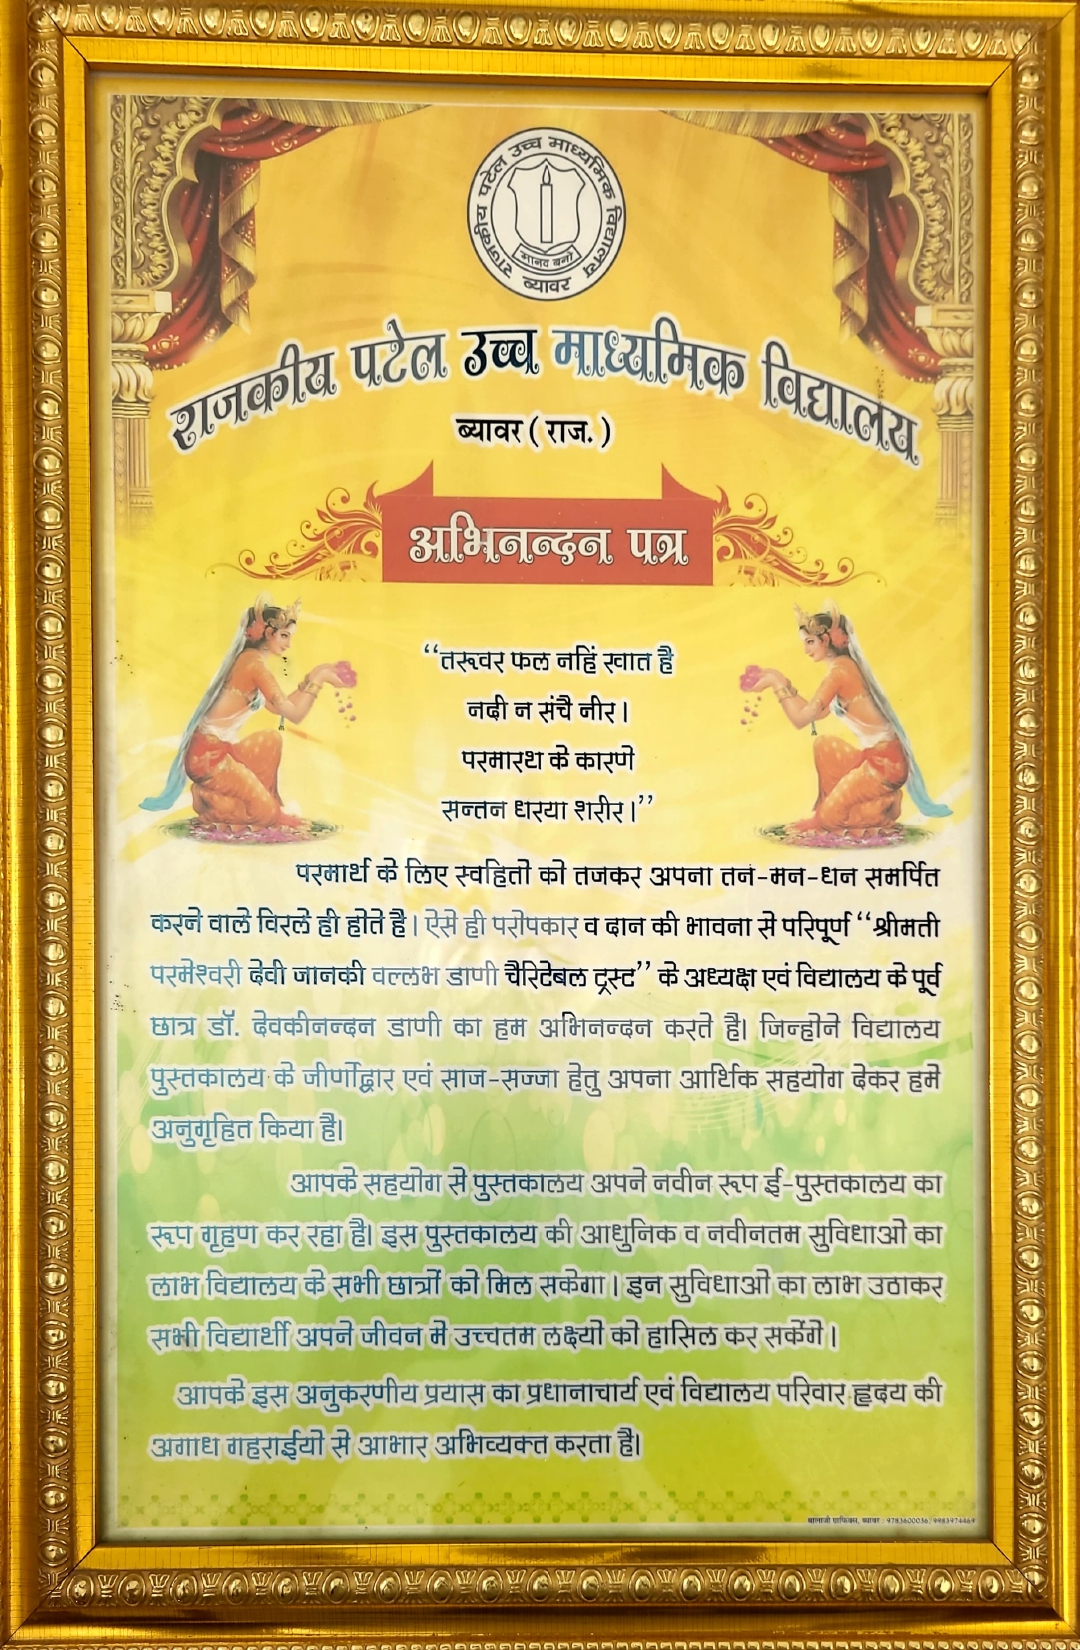 राजकीय पटेल उच्च माध्यमिक विद्यालय
ब्यावर
मानव बनो
राजकीय पटेल उच्च माध्यमिक विद्यालय
ब्यावर ( राज. )
अभिनन्दन पत्र
“तरूवर फल नहिं खात है
नदी न संचै नीर।
परमारथ के कारणे
सन्तन धरया शरीर।”
परमार्थ के लिए स्वहितो को तजकर अपना तन-मन-धन समर्पित
करने वाले विरले ही होते है। ऐसे ही परोपकार व दान की भावना से परिपूर्ण “श्रीमती
परमेश्वरी देवी जानकी वल्लभ डाणी चैरिटेबल ट्रस्ट” के अध्यक्ष एवं विद्यालय के पूर्व
छात्र डॉ. देवकीनन्दन डाणी का हम अभिनन्दन करते है। जिन्होने विद्यालय
पुस्तकालय के जीर्णोद्धार एवं साज-सज्जा हेतु अपना आर्थिक सहयोग देकर हमे
अनुगृहित किया है।
आपके सहयोग से पुस्तकालय अपने नवीन रूप ई-पुस्तकालय का
रूप गृहण कर रहा है। इस पुस्तकालय की आधुनिक व नवीनतम सुविधाओ का
लाभ विद्यालय के सभी छात्रों को मिल सकेगा। इन सुविधाओ का लाभ उठाकर
सभी विद्यार्थी अपने जीवन मे उच्चतम लक्ष्यो को हासिल कर सकेंगे।
आपके इस अनुकरणीय प्रयास का प्रधानाचार्य एवं विद्यालय परिवार हृदय की
अगाध गहराईयो से आभार अभिव्यक्त करता है।
बालाजी ग्राफिक्स, ब्यावर : 9783600036, 9983974469